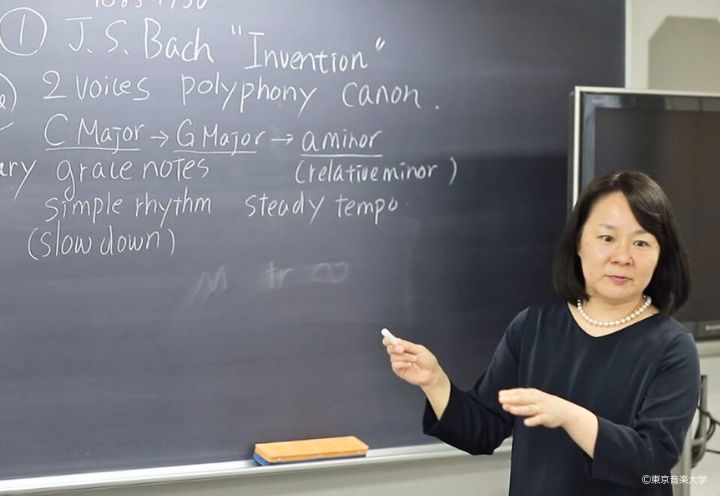 1685-1750
① J. S. Bach "Invention"
2 voices polyphony canon.
C Major → G Major → a minor
grace notes (relative minor)
simple rhythm steady tempo
(slow down)
tr ∞
©東京音楽大学